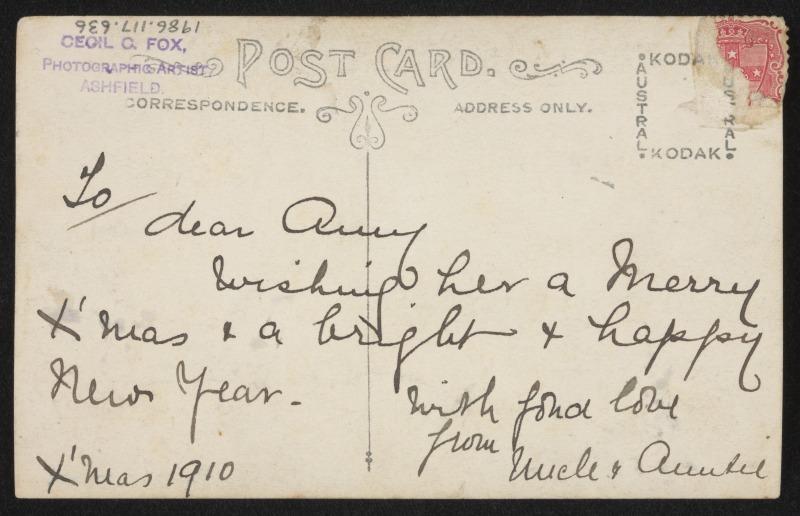 1986.117.636
CECIL C. FOX,
PHOTOGRAPHIC ARTIST,
ASHFIELD.
POST CARD.
CORRESPONDENCE.
ADDRESS ONLY.
KODAK
AUSTRAL
AUSTRAL
KODAK
To/ dear Amy
Wishing her a Merry
X'mas & a bright & happy
New Year.
With fond love
from
Uncle & Auntie
X'mas 1910